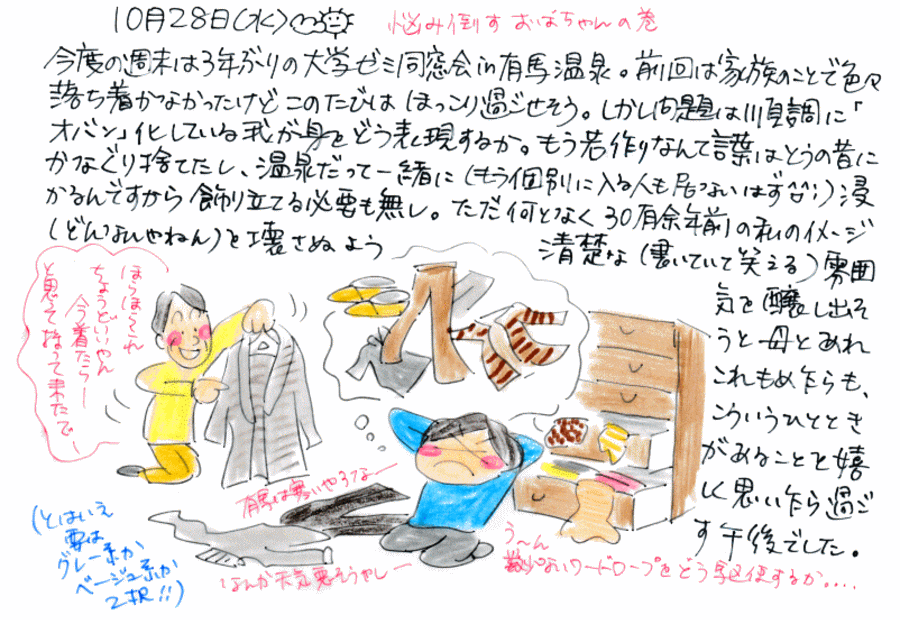 10月28日(水)
悩み倒すおばちゃんの巻
今度の週末は3年ぶりの大学ゼミ同窓会in有馬温泉。前回は家族のことで色々
落ち着かなかったけどこのたびはほっこり過ごせそう。しかし問題は順調に「
オバン」化している我が身をどう表現するか。もう若作りなんて言葉はとうの昔に
かなぐり捨てたし、温泉だって一緒に(もう個別に入る人も居ないはず^^;)浸
かるんですから飾り立てる必要も無し。ただ何となく30有余年前の私のイメージ
(どんなんやねん)を壊さぬよう
清楚な(書いていて笑える)雰囲
気を醸し出そ
うと母とあれ
これもめ乍らも、
こういうひととき
があることを嬉
しく思い乍ら過ご
す午後でした。
ほらほらこれ
ちょうどいいやん
今着たらー
と思って持って来たでー
有馬は寒いやろなー
なんか天気悪そうやしー
う〜ん
数少ないワードローブをどう駆使するか....
(とはいえ
要は
グレー系か
ベージュ系か
2択!!)